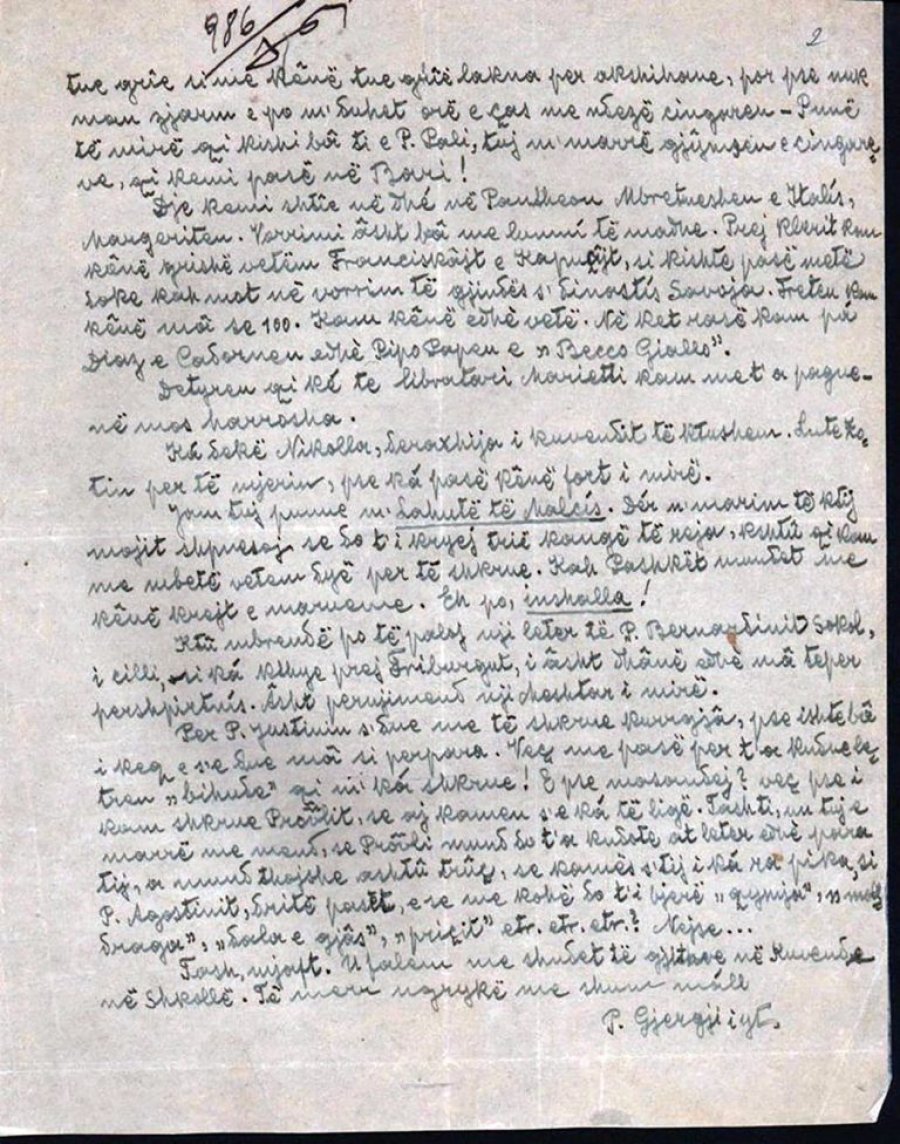 986
2
tue grîe si me kênë tue grîë lakna per akshihane, por pse nuk
mam zjarm e po m' duhet orë e ças me ndezë cingaren – Punë
të mirë qi kishi bâ ti e P. Pali, tuj m' marrë gjymsen e cingare
ve, qi kemi pasë në Bari!
Dje kemi shtîe në dhé në Pantheon Mbretneshen e Italís,
Margeriten. Vorrimi âsht bâ me lumní të madhe. Prej klerit kan
kênë grishë vetëm Franciskâjt e Kapuçijt, si kishte pasë metë
doke kah mot në vorrim të gjindës s' dinastís Savoja. Freten kan
kênë mâ se 100. Kam kênë edhè vetë. Në ket rasë kam pá
Diaz e Cadornen edhè Pipo Papen e „Becco Giallo".
Detyren qi ké te libratari Marietti kam me t'a pague-
në mos harrosha.
Ká dekë Nikolla, deraxhija i kuvendit të ktushem. Lute Zo-
tin per të mjerin, pse ká pasë kênë fort i mirë.
Jam tuj punue n' Lahutë të Malcís. Dér n' marim të ktij
mojit shpresoj se do t'i kryej trië kangë të reja, kshtû qi kam
me mbetë vetem dyë per të shkrue. Kah Pashkët mundet me
kênë krejt e marueme. Eh po, inshalla!
Ktû mbrendë po të paloj nji leter të P. Bernardinit Sokol,
i cilli, si ká kthye prej Friburgut, i âsht dhânë edhè mâ teper
pershpirtnís. Âsht perujimend nji meshtar i mirë.
Per P. Justinin s'due me të shkrue kurrgjâ, pse ishte bâ
i keq e s'e due mâ si perpara. Veç me pasë per t'a kndue le-
tren „bihude" qi m' ká shkrue! E pse mosandej? veç pse i
kam shkrue Prôlit, se aj kamen s'e ká të ligë. Tashti, un tuj e
marrë me mend, se Prôli mund do t'a kndote at leter edhè para
tij, a mund thojshe ashtû trûç, se kamës s'tij i ká ra pika, si
P. Agostinit, dritë pastët, e se me kohë do t'i bjerë „qymja", „
draga", „dala e gjâs", „priçit" etr. etr. etr.? Nejse...
Tash, mjaft. U falem me shndet të gjithve në Kuvend e
në Shkollë. Të merr ngrykë me shum mâll
P. Gjergji i yt.